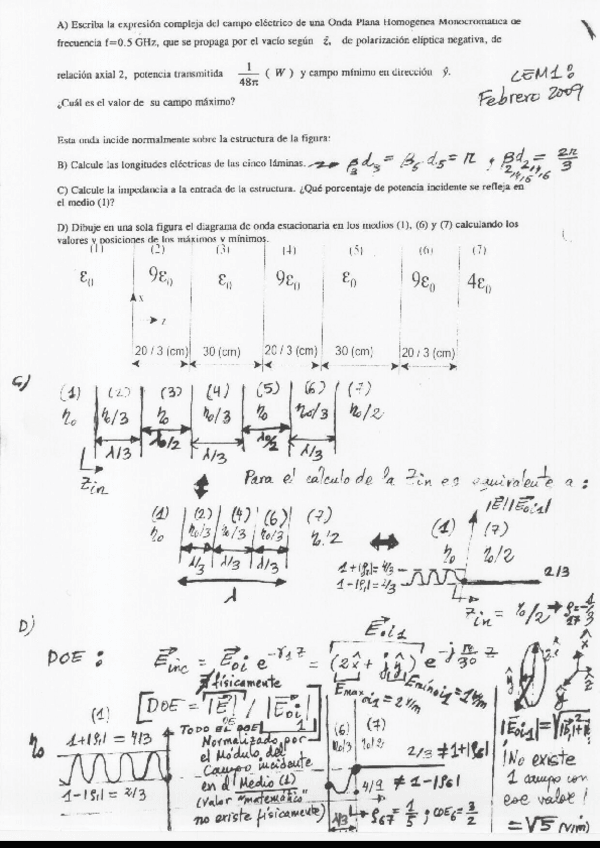 A) Escriba la expresión compleja del campo eléctrico de una Onda Plana Homogénea Monocromática de
frecuencia f=0.5 GHz, que se propaga por el vacío según ẑ, de polarización elíptica negativa, de
relación axial 2, potencia transmitida 1/48π ( W ) y campo mínimo en dirección ŷ.
LEM1:
Febrero 2009
¿Cuál es el valor de su campo máximo?
Esta onda incide normalmente sobre la estructura de la figura:
B) Calcule las longitudes eléctricas de las cinco láminas. β₃d₃ = β₅d₅ = π ; βd₂,₄,₆ = 2π/3
C) Calcule la impedancia a la entrada de la estructura. ¿Qué porcentaje de potencia incidente se refleja en
el medio (1)?
D) Dibuje en una sola figura el diagrama de onda estacionaria en los medios (1), (6) y (7) calculando los
valores y posiciones de los máximos y mínimos.
(1) (2) (3) (4) (5) (6) (7)
ε₀ 9ε₀ ε₀ 9ε₀ ε₀ 9ε₀ 4ε₀
x
z
20 / 3 (cm) 30 (cm) 20 / 3 (cm) 30 (cm) 20 / 3 (cm)
C)
(1) (2) (3) (4) (5) (6) (7)
η₀ η₀/3 η₀ η₀/3 η₀ η₀/3 η₀/2
λ/3 λ₀/2 λ/3 λ₀/2 λ/3
Zin
Para el cálculo de la Zin es equivalente a:
(1) (2) (4) (6) (7)
η₀ η₀/3 η₀/3 η₀/3 η₀/2
λ/3 λ/3 λ/3
λ
|E|/|E₀i1|
(1) (7)
η₀ η₀/2
1+|ρ₁| = 4/3
1-|ρ₁| = 2/3
2/3
Zin = η₀/2 → ρ₁₇ = -1/3
D)
DOE:
E inc = E₀i e^-γ₁z = (2x̂ + jŷ) e^-j π/30 z
E₀i1
≠ físicamente
[DOE = |E| / |E₀i|]
Emax i1 = 2 V/m
Emin i1 = 1 V/m
(1)
η₀
1+|ρ₁| = 4/3
1-|ρ₁| = 2/3
TODO EL DOE
Normalizado por
el Módulo del
Campo incidente
en el Medio (1)
(Valor "matemático"
no existe físicamente)
(6) (7)
η₀/3 η₀/2
2/3 ≠ 1+|ρ₆|
4/9 ≠ 1-|ρ₆|
λ/3
ρ₆₇ = 1/5 ; COE₆ = 3/2
¡No existe
1 campo con
ese valor!
= √5 (V/m)